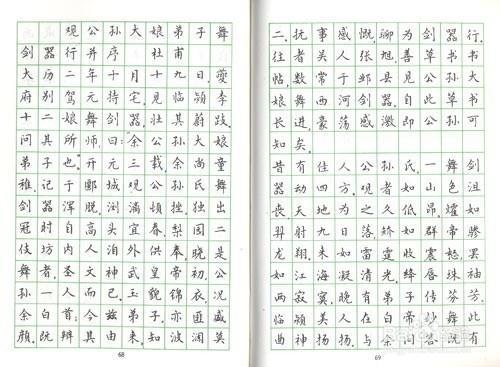 观公孙大娘弟子舞
剑器行并序 杜甫
大历二年十月十九日,夔
府别驾元持宅,见临颍李
十二娘舞剑器,壮其蔚跂,
问其所师,曰:“余公孙大娘
弟子也”开元三载,余尚童
稚,记于郾城观公孙氏舞
剑器浑脱,浏漓顿挫,独出
冠时,自高头宜春、梨园二
伎坊内人洎外供奉,晓是
舞者,圣文神武皇帝初,公
孙一人而已。玉貌锦衣,况
余白首;今兹弟子,亦匪盛
颜,既辨其由来,知波澜莫
68
二,抚事感慨,聊为剑器行。
往者吴人张旭,善草书书
帖,数常于邺县见公孙大
娘舞西河剑器,自此草书
长进,豪荡感激,即公孙可
知矣。
昔有佳人公孙氏,一舞剑
器动四方。观者如山色沮
丧,天地为之久低昂。燿如
羿射九日落,矫如群帝骖
龙翔。来如雷霆收震怒,罢
如江海凝清光。绛唇珠袖
两寂寞,晚有弟子传芬芳。
临颍美人在白帝,妙舞此
曲神扬扬。与余问答既有
69